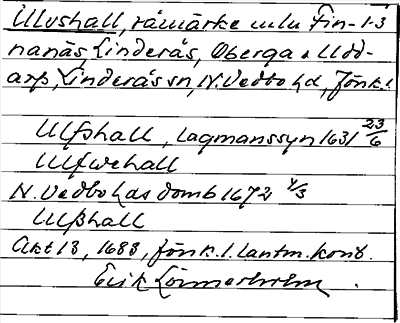 Ulvshall, råmärke mlu Fin-
nanäs, Linderås, Oberga o. Udd-
arp, Linderås sn, N. Vedbo hd, Jönk. l.
Ulfshall, lagmanssyn 1631 23/6
Ulfwehall
N. Vedbo hds domb 1672 4/3
Ulfshall
Akt 13, 1683, Jönk. l. lantm. kont.